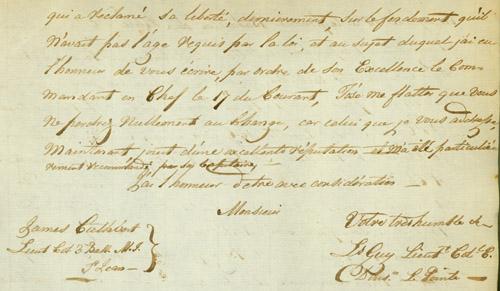 qui a réclamé sa liberté, dernièrement sur le fondement qu'il
n'avait pas l'age requis par la loi, et au sujet duquel j'ai eu
l'honneur de vous écrire, par ordre de son Excellence le Com-
mandant en Chef le 17 du Courant, J'ose me flatter que vous
ne perdrez nullement au change, car celui que je vous adresse
Maintenant jouit d'une excellente réputation et m'a été particuliè-
rement recommandé, par son Capitaine,
J'ai l'honneur d'etre avec considération
Monsieur
James Cuthbert
Lieut Col 3 Batt. M. I.
St Jean
Votre très humble &
Ls Guy Lieut. Col.
Divis.